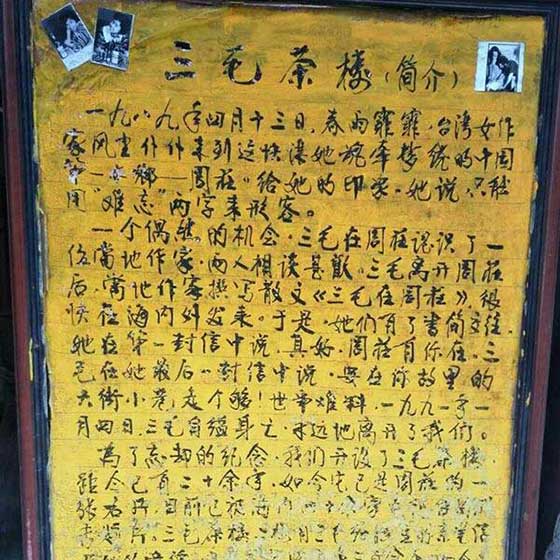 三毛茶楼（简介）
一九八九年四月十三日，春雨霏霏，台湾女作
家 风尘仆仆来到这快让她魂牵梦绕的中国
一水乡——周庄"给她的印象，她说，只能
用"难忘"两字来形容。
一个偶然的机会，三毛在周庄认识了一
位当地作家，两人相谈甚欢。三毛离开周庄
后，当地作家撰写散文《三毛在周庄》，很
快在海内外发表。于是，她们有了书简交往，
她在第一封信中说，真好，周庄有你在。三
毛在她最后一封信中说，要在你故里的
大街小巷走个够！世事难料，一九九一年一
月四日，三毛自缢身亡，永远地离开了我们。
为了忘却的纪念，我们开设了三毛茶楼
距今已有二十余年，如今它已是周庄的一
张名片，目前已被海内外
三毛茶楼